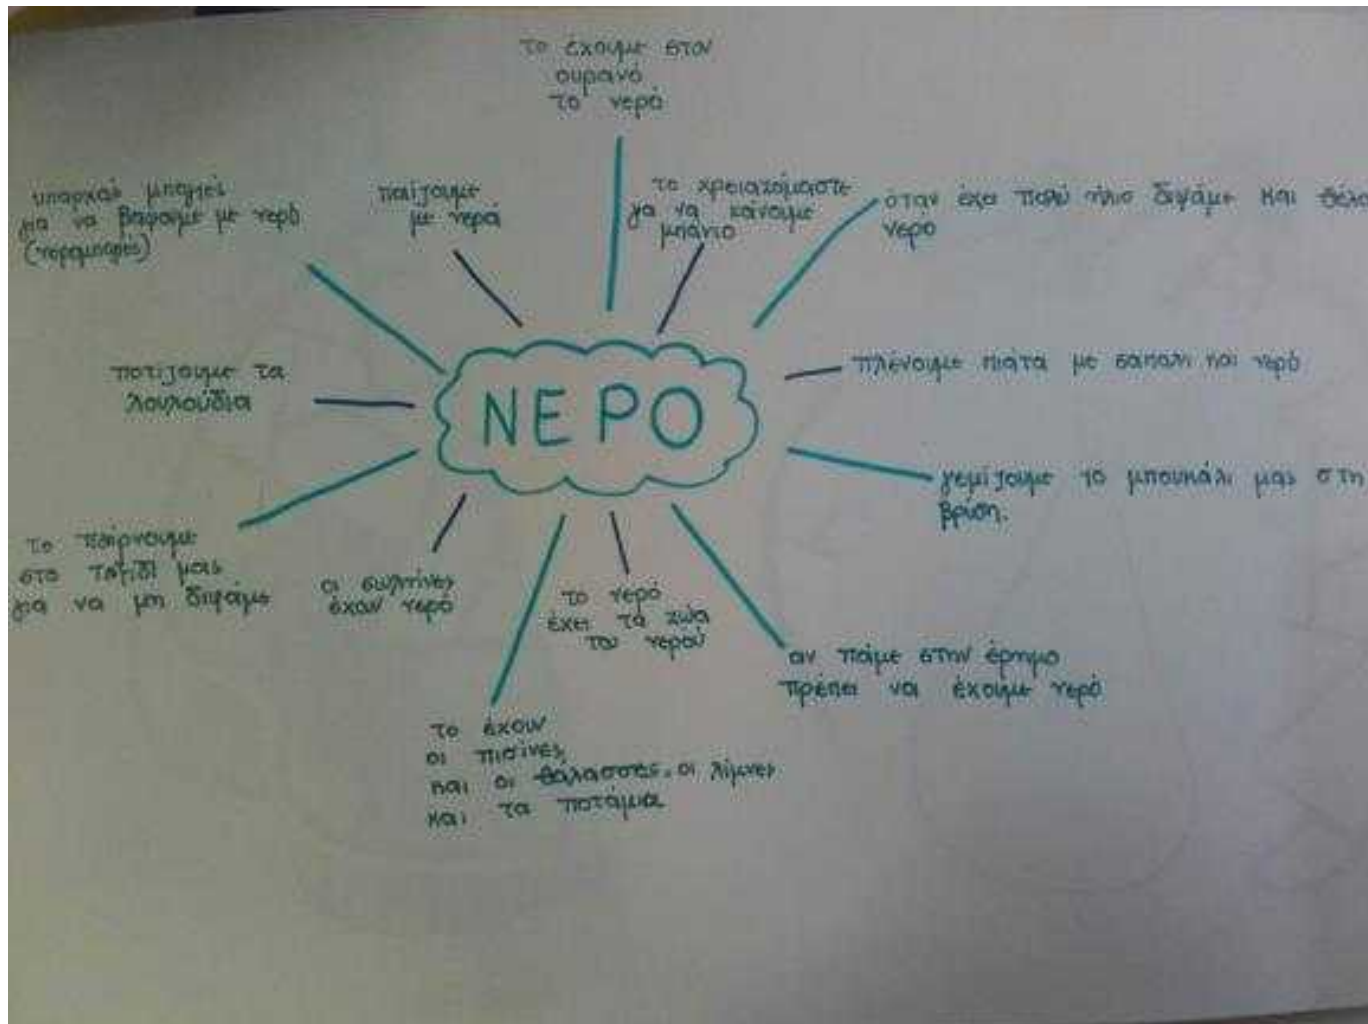 το έχουμε στον
ουρανό
το νερό
υπάρχουν μπογιές
για να βάφουμε με νερό
(νερομπογιές)
παίζουμε
με νερά
το χρειαζόμαστε
για να κάνουμε
μπάνιο
όταν έχει πολύ ήλιο διψάμε και
νερό
ΝΕΡΟ
πλένουμε πιάτα με σαπούνι και νερό
ποτίζουμε τα
λουλούδια
γεμίζουμε το μπουκάλι μας στη
βρύση.
το παίρνουμε
στο ταξίδι μας
για να μη διψάμε
οι σωλήνες
έχουν νερό
το νερό
έχει τα ζώα
του νερού
αν πάμε στην έρημο
πρέπει να έχουμε νερό
το έχουν
οι πισίνες,
και οι θάλασσες, οι λίμνες
και τα ποτάμια